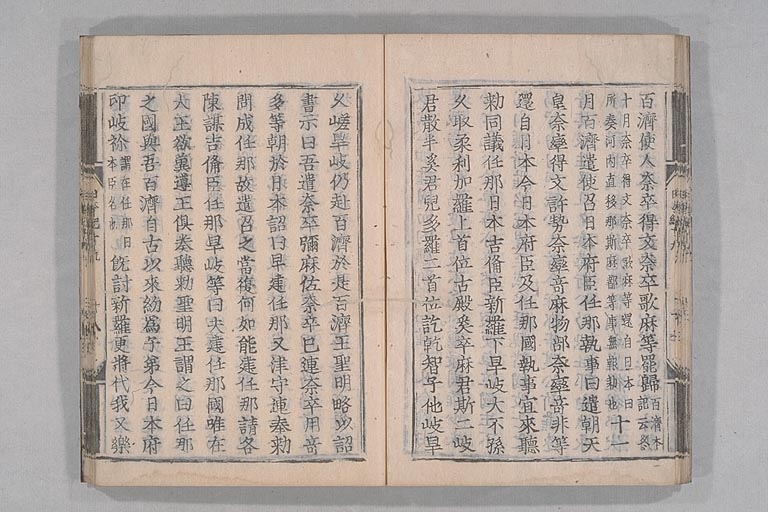 百濟使人奈卒得文奈卒歌麻等罷歸百濟本記云冬
十月奈卒得文奈卒歌麻等還自日本曰
所奏河内直移那斯麻都等事無報勅也十一
月百濟遣使召日本府臣任那執事曰遣朝天
皇奈率得文許勢奈率竒麻物部奈率竒非等
還自日本今日本府臣及任那國執事宜來聽
勅同議任那日本吉備臣新羅下旱岐大不孫
久取柔利加羅上首位古殿奚卒麻君斯二岐
君散半奚君兒多羅二首位訖乾智子他岐旱
久嵯旱岐仍赴百濟於是百濟王聖明略以詔
書示曰吾遣奈卒彌麻佐奈卒已連奈卒用竒
多等朝於日本詔曰早建任那又津守連奉勅
問成任那故遣召之當復何如能建任那請各
陳謀吉備臣任那旱岐等曰夫建任那國唯在
大王欲冀遵王俱奏聽勅聖明王謂之曰任那
之國與吾百濟自古以來約爲子弟今日本府
印岐彌謂在任那日
本臣名也既討新羅更將代我又樂